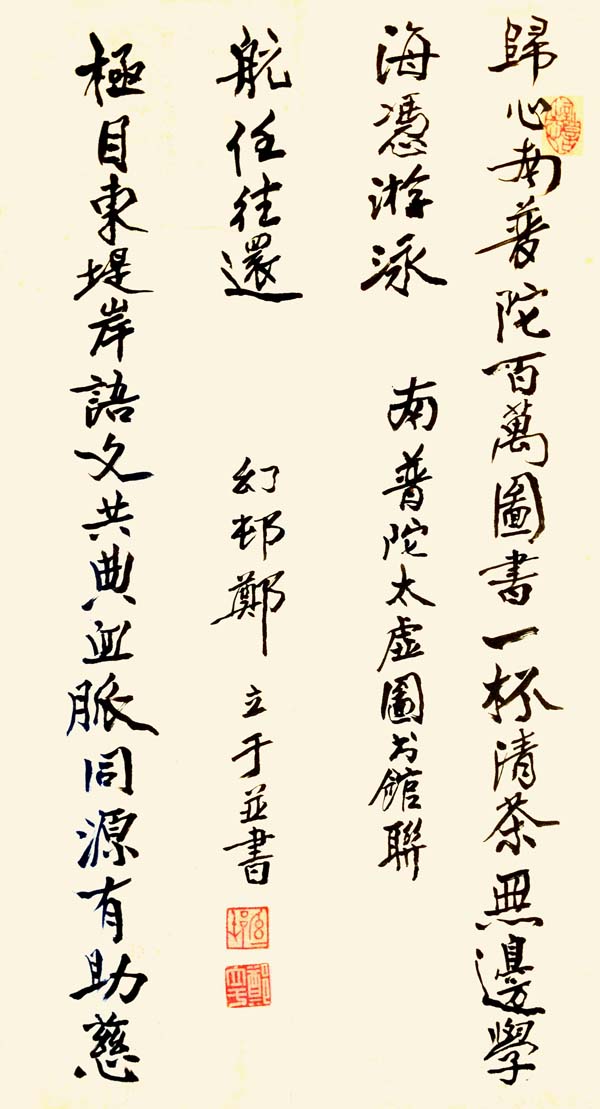 歸心南普陀百萬圖書一杯清茶無邊學
海憑游泳
極目東堤岸語文共典血脈同源有助慈
航任往還
南普陀太虛圖书館聯
幻邨鄭立于並書